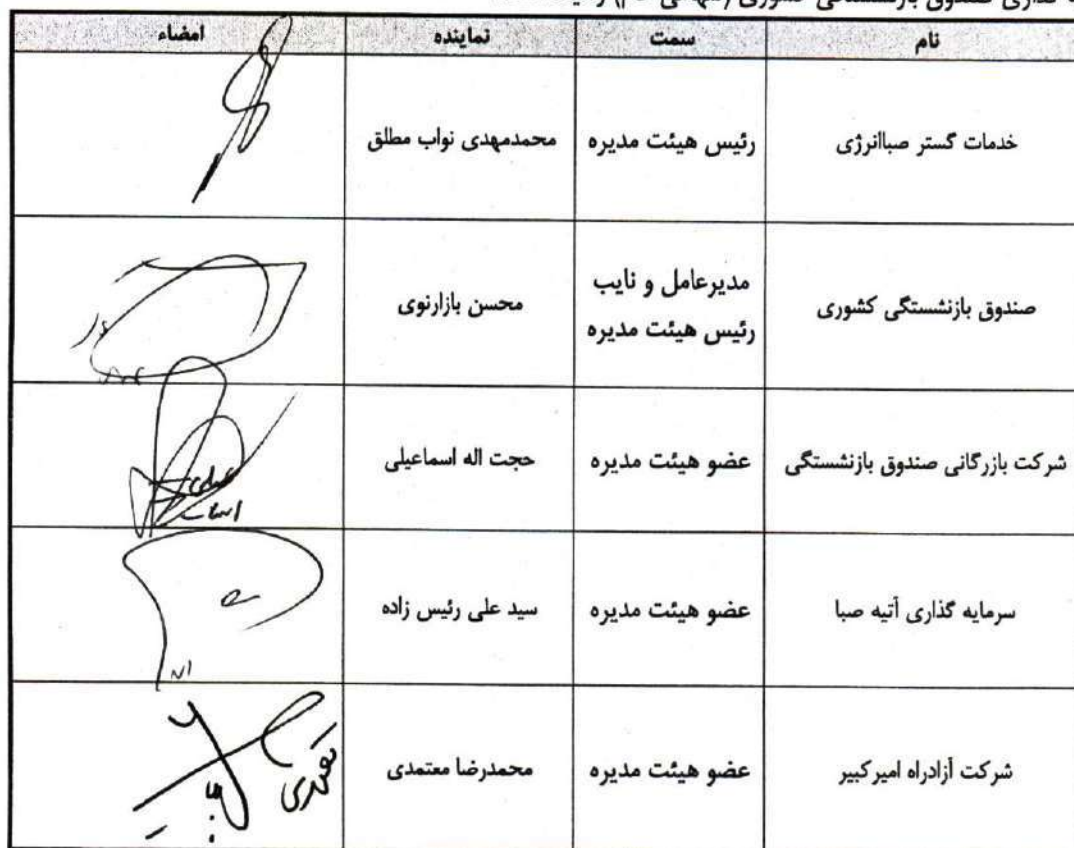 گذاری صندوق بازنشستگی کشوری
نام سمت نماینده امضاء
خدمات گستر صباانرژی رئیس هیئت مدیره محمدمهدی نواب مطلق
صندوق بازنشستگی کشوری مدیرعامل و نایب رئیس هیئت مدیره محسن بازارنوی
شرکت بازرگانی صندوق بازنشستگی عضو هیئت مدیره حجت اله اسماعیلی
سرمایه گذاری آتیه صبا عضو هیئت مدیره سید علی رئیس زاده
شرکت آزادراه امیرکبیر عضو هیئت مدیره محمدرضا معتمدی